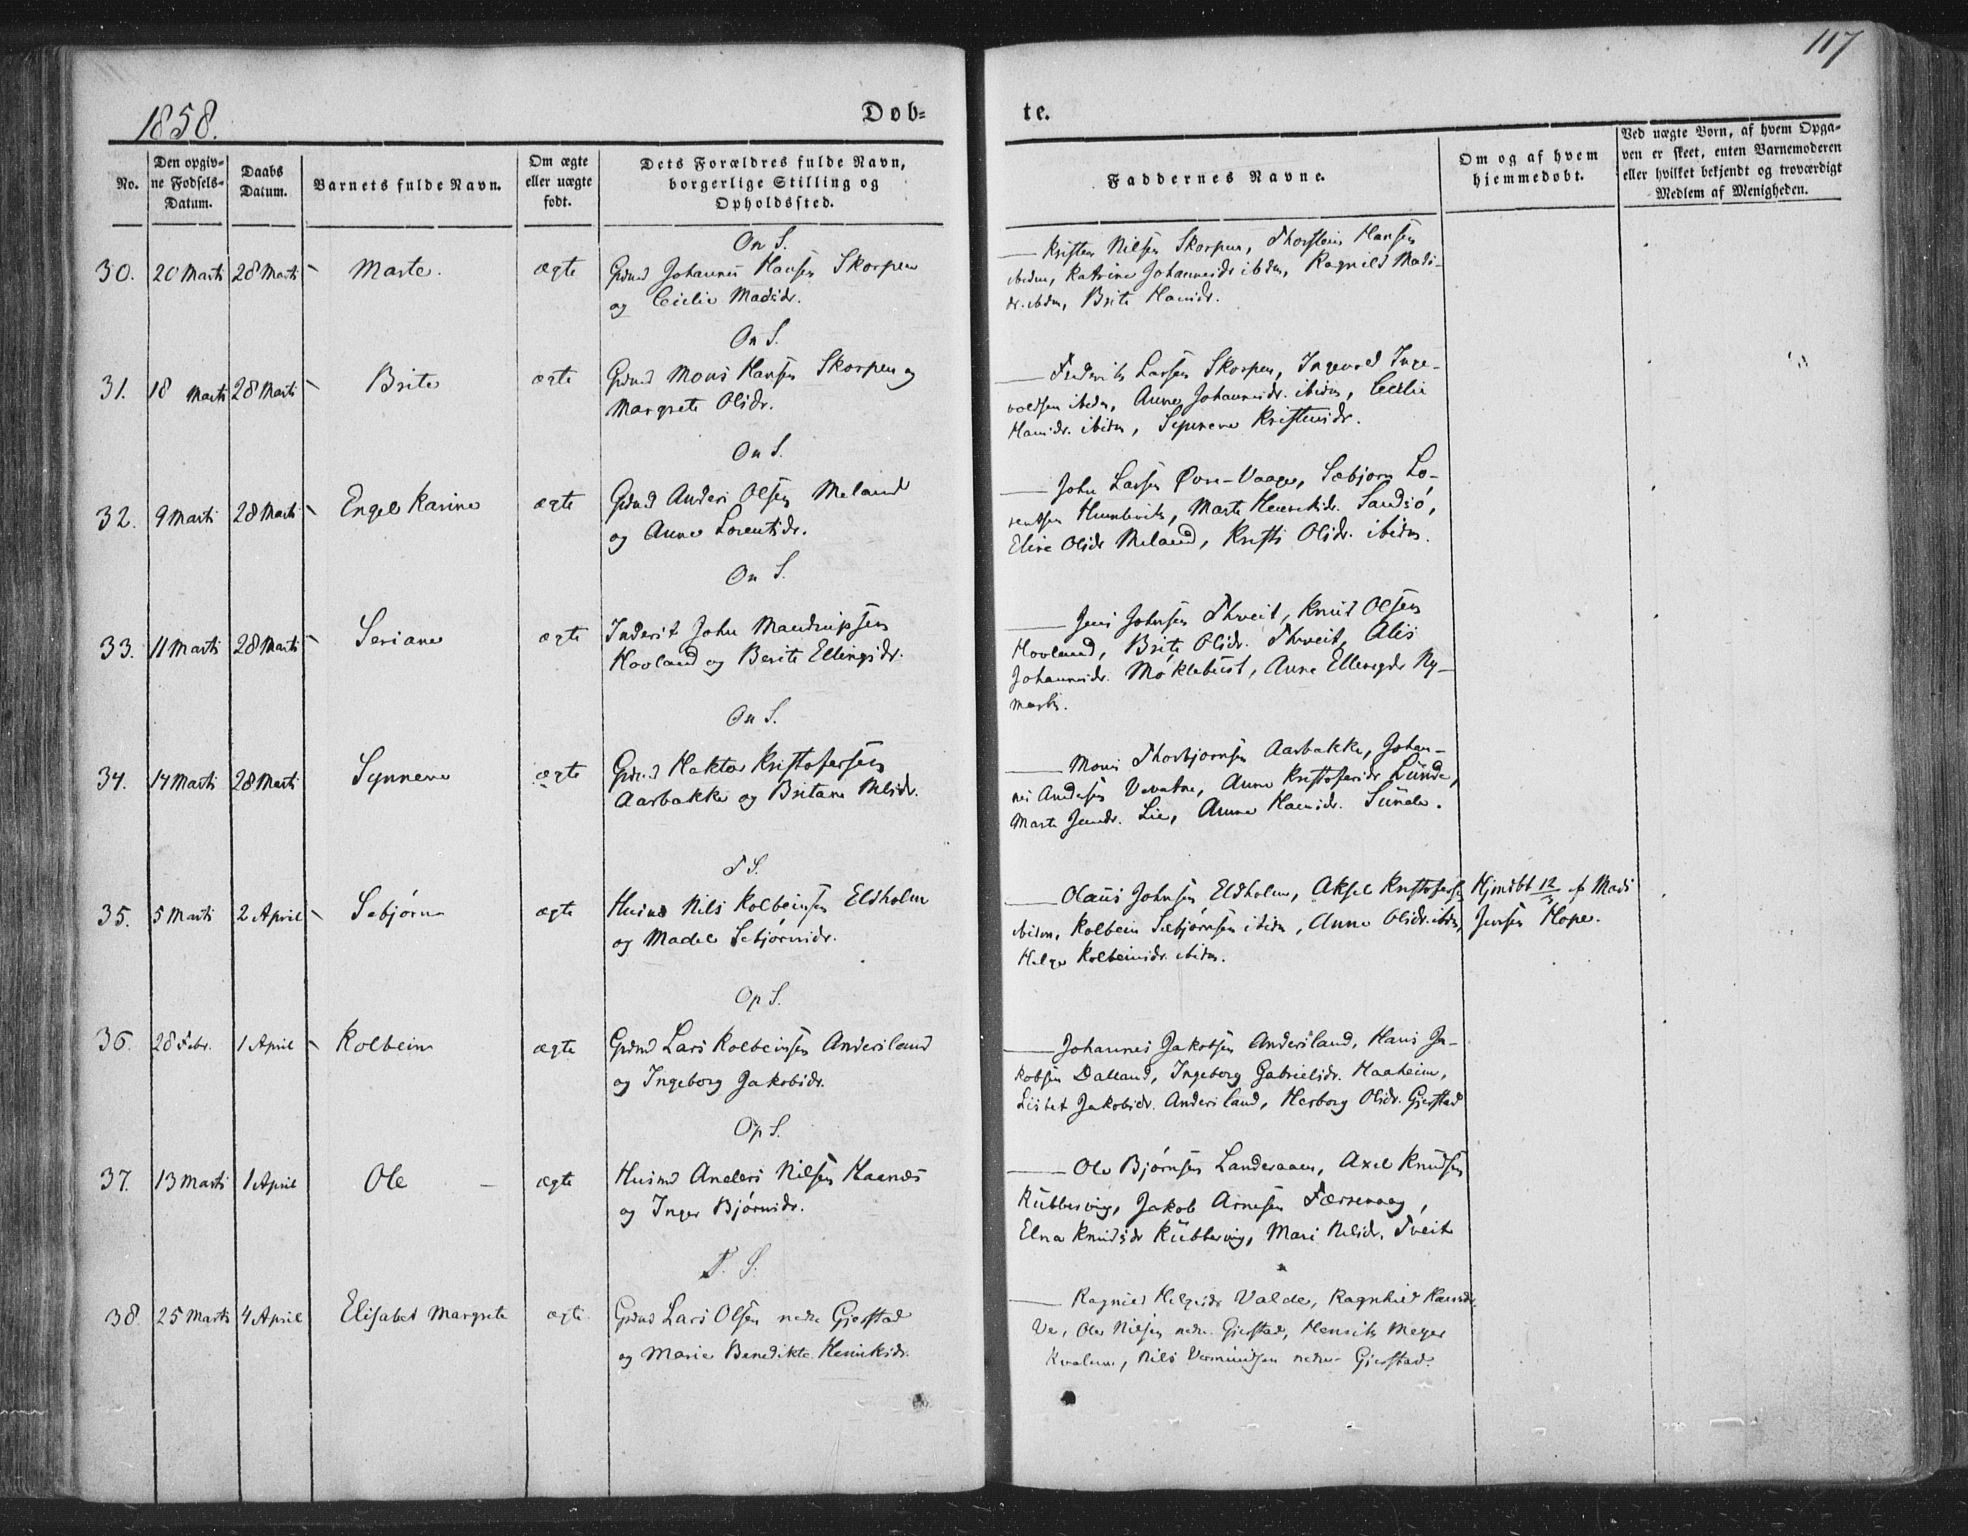 117
1858.
Døb-
te.
No.
Den opgiv-
ne Fødsels-
Datum.
Daabs
Datum.
Barnets fulde Navn.
Om ægte
eller uægte
født.
Dets Forældres fulde Navn,
borgerlige Stilling og
Opholdssted.
Faddernes Navne.
Om og af hvem
hjemmedøbt.
Ved uægte Børn, af hvem Opga-
ven er skeet, enten Barnemoderen
eller hvilket bekjendt og troværdigt
Medlem af Menigheden.
On S.
30. 20 Marts 28 Marts Marte. ægte Grdmd Johannes Hansen Skorpen
og Cicilie Madsdr.
Kristen Nilsen Skorpen, Thorstein Hansen
ibidm, Katrine Johannesdr ibidm, Ragnild Mads-
dr. ibidm, Brite Hansdr.
On S.
31. 18 Marts 28 Marts Brite ægte Grdmd Mons Hansen Skorpen og
Margrete Olsdr.
Fredrik Larsen Skorpen, Ingevald Inge-
valdsen ibidm, Anne Johannesdr. ibidm, Cecilie
Hansdr. ibidm, Synneve Kristensdr.
On S.
32. 9 Marts 28 Marts Engel Karine ægte Grdmd Anders Olsen Meland
og Anne Lorentsdr.
John Larsen Øvre-Vaage, Sæbjørn Lo-
rentsen Humlevik, Marte Henrikdr. Sandsø,
Eline Olsdr Meland, Kristi Olsdr. ibidm.
On S.
33. 11 Marts 28 Marts Seriane ægte Inderst John Mandrupsen
Hovland og Berite Ellingsdr.
Jens Johnsen Thveit, Knud Olsen
Hovland, Brite Olsdr. Thveit, Alis
Johannesdr. Møklebust, Anne Ellingsdr Ny-
mark.
On S.
34. 14 Marts 28 Marts Synneve ægte Grdmd Haktor Kristofersen
Aarbakke og Britane Nilsdr.
Mons Thorbjørnsen Aarbakke, Johan-
nes Andersen Vevatne, Anne Kristofersdr Sunde,
Marte Jensdr. Lie, Anne Hansdr. Sunde.
T S.
35. 5 Marts 2 April Sebjørn ægte Husmd Nils Kolbeinsen Eldholm
og Madel Sebjørnsdr.
Olaus Johnsen Eldholm, Aksel Kristofersen
ibidm, Kolbein Sæbjørnsen ibidm, Anne Olsdr. ibidm,
Helge Kolbeinsdr. ibidm.
Hjmdbt 12/3 af Mads
Jensen Hope.
Op S.
36. 28 Febr. 1 April Kolbein ægte Grdmd Lars Kolbeinsen Andersland
og Ingeborg Jakobsdr.
Johannes Jakobsen Andersland, Hans Ja-
kobsen Dalland, Ingeborg Gabrielsdr. Haaheim,
Lisbet Jakobsdr. Andersland, Herborg Olsdr. Gjerstad
Op S.
37. 13 Marts 1 April Ole - ægte Husmd Anders Nilsen Haanes
og Inger Bjørnsdr.
Ole Bjørnsen Landeraaen, Axel Knudsen
Kubbervig, Jakob Arnesen Færsevaag,
Elna Knudsdr Kubbervig, Mari Nilsdr. Tveit
P. S.
38. 25 Marts 4 April Elisabet Margrete ægte Grdmd Lars Olsen nedre Gjerstad
og Marie Benedikte Henriksdr.
Ragnild Helgesdr Valde, Ragnhild Hansdr.
Ve, Ole Nilsen nedre Gjerstad, Henrik Meyer
Kvalem, Nils Vermundsen nedre Gjerstad.